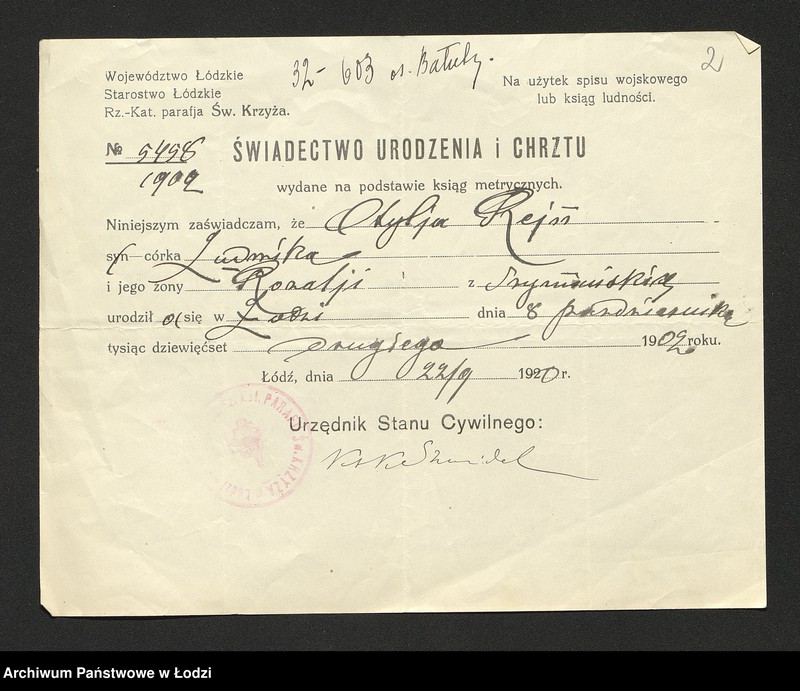 32-603 os. Bałuty.
2
Województwo Łódzkie
Starostwo Łódzkie
Rz.-Kat. parafja Św. Krzyża.
Na użytek spisu wojskowego
lub ksiąg ludności.
№ 5458
1902
ŚWIADECTWO URODZENIA i CHRZTU
wydane na podstawie ksiąg metrycznych.
Niniejszym zaświadczam, że Otylja Rejss
syn—córka Ludwika
i jego żony Rozalji z Szymańskich
urodził a się w Łodzi dnia 8 października
tysiąc dziewięćset drugiego 1902 roku.
Łódź, dnia 22/9 1920 r.
Urzędnik Stanu Cywilnego:
PARAF. Św. KRZYŻA w Łodzi
Archiwum Państwowe w Łodzi